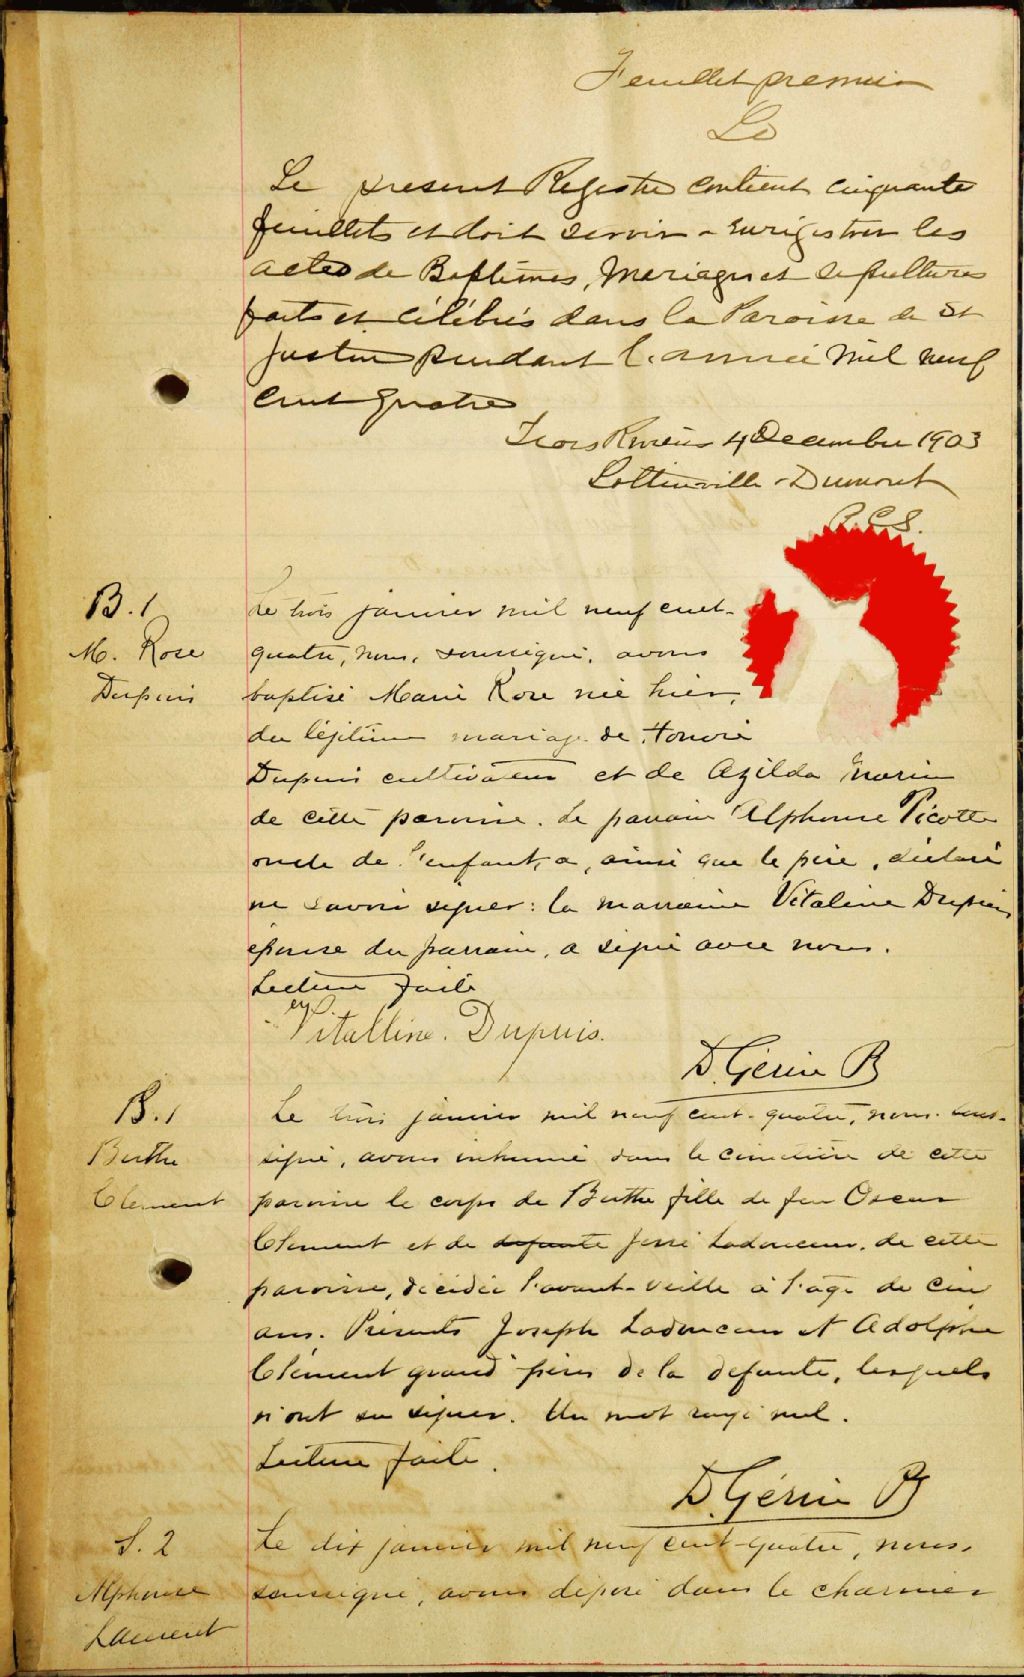 Feuillet premier
Le
Le present Registre contient cinquante
feuillets et doit servir a enregistrer les
actes de Baptêmes, Mariages et sepultures
faits et célébrés dans la Paroisse de St
Justin pendant l'année Mil neuf
cent quatre
Trois Rivières 4 Decembre 1903
Lottinville & Dumont
P.C.S.
B. 1
M. Rose
Dupuis
Le trois janvier mil neuf cent-
quatre, nous, soussigné, avons
baptisé Marie Rose née hier,
du légitime mariage de Honoré
Dupuis cultivateur et de Azilda Marin
de cette paroisse. Le parrain Alphonse Picotte
oncle de l'enfant, a, ainsi que le père, déclaré
ne savoir signer: la marraine Vitaline Dupuis
épouse du parrain, a signé avec nous.
Lecture faite
Vitalline. Dupuis.
D. Gérin
B. 1
Berthe
Clement
Le trois janvier mil neuf cent-quatre, nous sous-
signé, avons inhumé dans le cimetière de cette
paroisse le corps de Berthe fille de feu Oscar
Clement et de defunte Ladouceur, de cette
paroisse, décédée l'avant-veille à l'âge de cinq
ans. Présents Joseph Ladouceur et Adolphe
Clément grand'pères de la defunte, lesquels
n'ont su signer. Un mot rayé nul.
Lecture faite.
D. Gérin
S. 2
Alphonse
Laurent
Le dix janvier mil neuf cent-quatre, nous,
soussigné, avons déposé dans le charnier